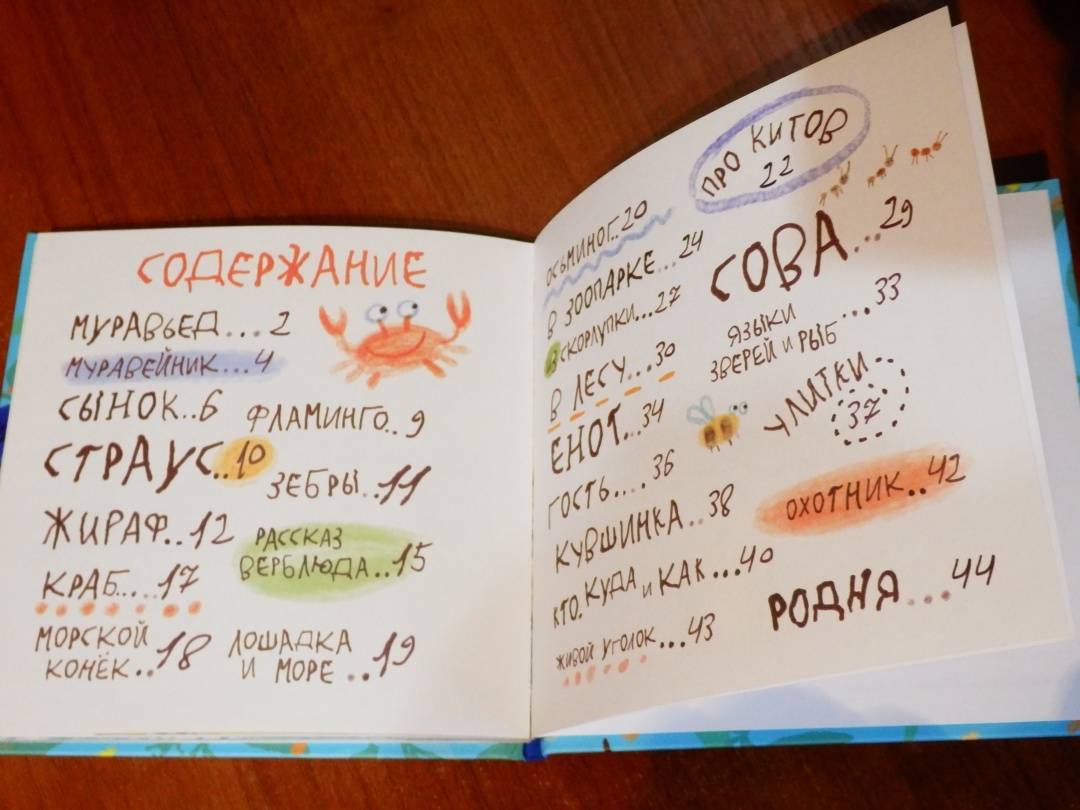 СОДЕРЖАНИЕ
МУРАВЬЕД...2
МУРАВЕЙНИК...4
СЫНОК..6
ФЛАМИНГО..9
СТРАУС..10
ЗЕБРЫ..11
ЖИРАФ..12
РАССКАЗ
ВЕРБЛЮДА..15
КРАБ....17
МОРСКОЙ
КОНЁК..18
ЛОШАДКА
И МОРЕ..19
ПРО КИТОВ
22
ОСЬМИНОГ..20
В ЗООПАРКЕ...24
СОВА...29
В СКОРЛУПКИ...27
ЯЗЫКИ
ЗВЕРЕЙ И РЫБ...33
В ЛЕСУ...30
ЕНОТ...34
УЛИТКИ
37
ГОСТЬ....36
КУВШИНКА..38
ОХОТНИК..42
КТО, КУДА И КАК...40
РОДНЯ...44
ЖИВОЙ УГОЛОК...43